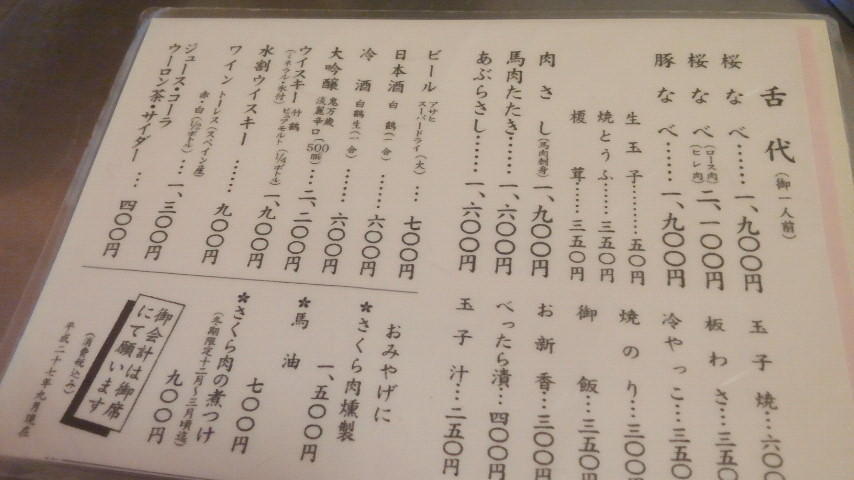 舌代(御一人前)
桜なべ……一、九〇〇円
桜なべ(ロース肉)(ヒレ肉)二、一〇〇円
豚なべ……一、九〇〇円
生玉子………五〇円
焼とうふ……三五〇円
榎茸……三五〇円
肉さし(馬肉刺身)一、九〇〇円
馬肉たたき…一、六〇〇円
あぶらさし……一、六〇〇円
玉子焼…六〇〇
板わさ…三五〇
冷やっこ…三五〇
焼のり…三〇〇
御飯…三五〇円
お新香…三〇〇円
べったら漬…四〇〇円
玉子汁…二五〇円
ビール アサヒスーパードライ(大)…七〇〇円
日本酒 白鶴(一合)……六〇〇円
冷酒 白鶴生(一合)……六〇〇円
大吟醸 淡麗辛口(500ml)…二、二〇〇円
ウイスキー 竹鶴ピュアモルト(1/4ボトル)(ミネラル・氷付)一、九〇〇円
水割ウイスキー……九〇〇円
ワイン トーレス(スペイン産)赤・白(1/2ボトル)…一、三〇〇円
ジュース・コーラ
ウーロン茶・サイダー…四〇〇円
おみやげに
*さくら肉燻製
一、五〇〇円
*馬油
七〇〇円
*さくら肉の煮つけ
(冬期限定十二月〜三月頃迄)
九〇〇円
御会計は御席
にて願います
(消費税込み)
平成二十七年九月現在